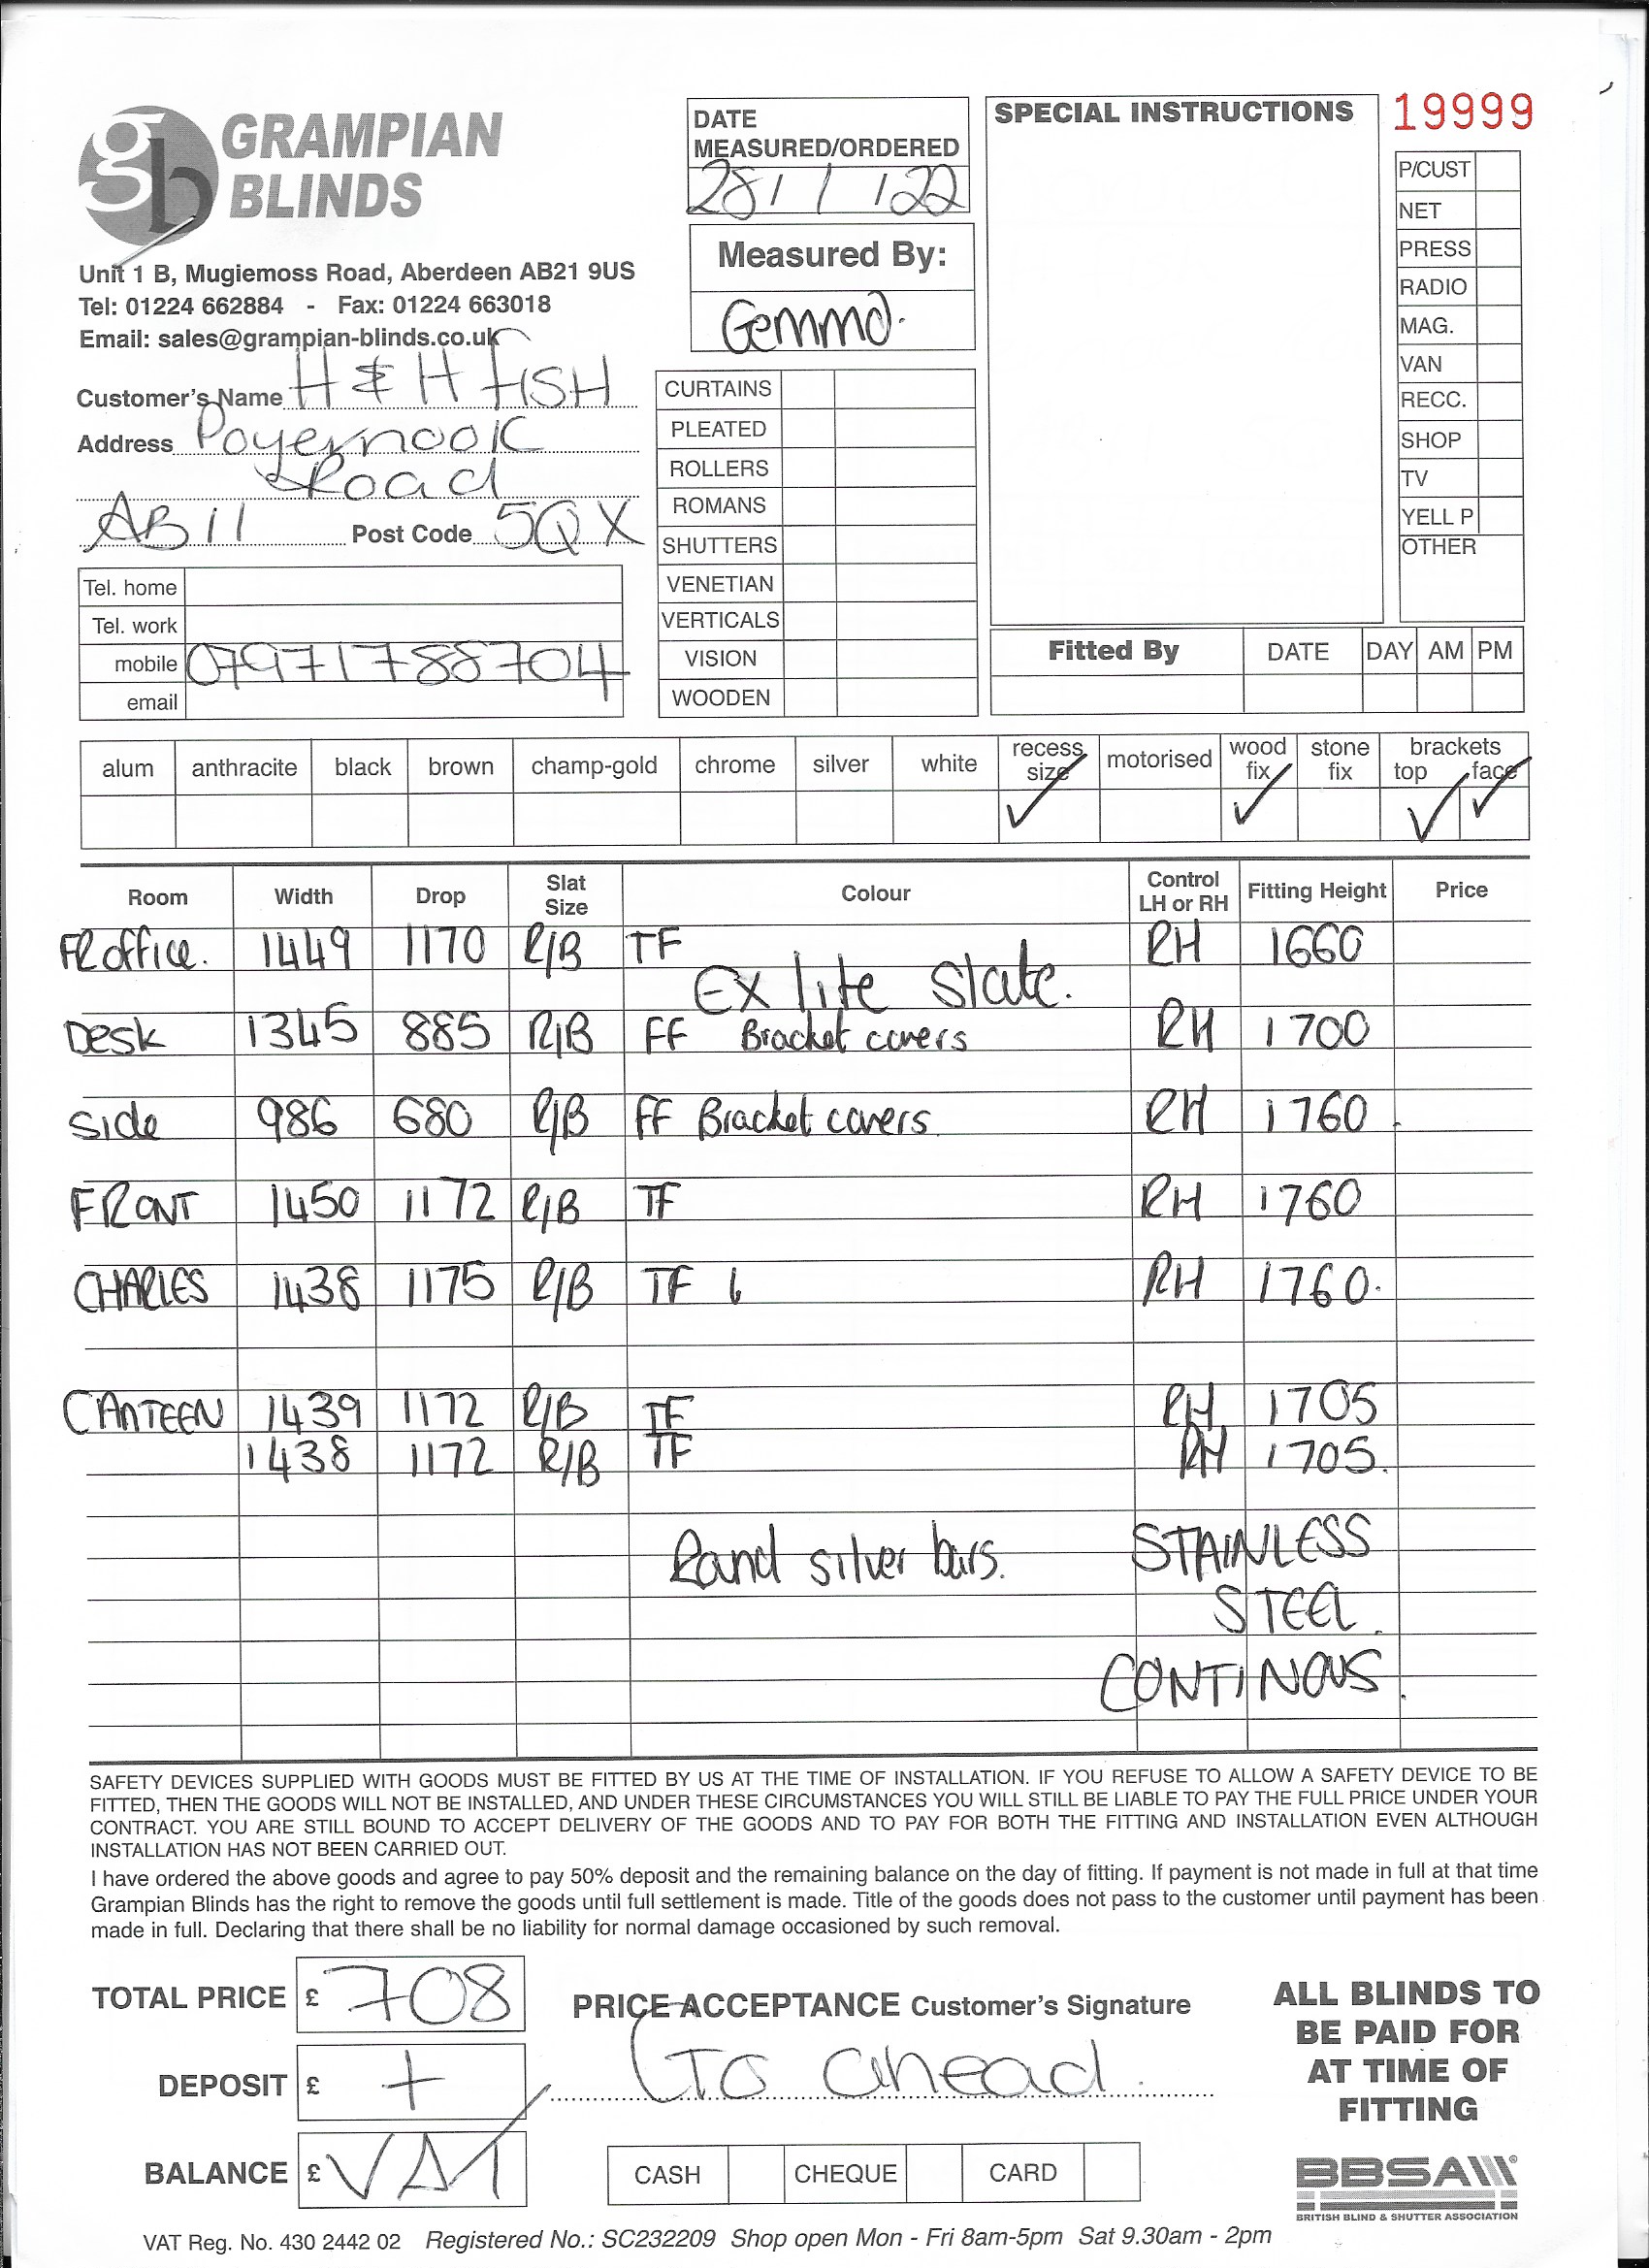 gb GRAMPIAN BLINDS
Unit 1 B, Mugiemoss Road, Aberdeen AB21 9US
Tel: 01224 662884 - Fax: 01224 663018
Email: sales@grampian-blinds.co.uk
Customer's Name H & H FISH
Address Poyernook
Road
AB11 Post Code 5QX
Tel. home
Tel. work
mobile 07971788704
email
DATE
MEASURED/ORDERED
28/1/22
Measured By:
Gemma.
CURTAINS
PLEATED
ROLLERS
ROMANS
SHUTTERS
VENETIAN
VERTICALS
VISION
WOODEN
SPECIAL INSTRUCTIONS
19999
P/CUST
NET
PRESS
RADIO
MAG.
VAN
RECC.
SHOP
TV
YELL P
OTHER
Fitted By DATE DAY AM PM
alum anthracite black brown champ-gold chrome silver white recess size motorised wood fix stone fix brackets top face
✓ ✓ ✓ ✓
Room Width Drop Slat Size Colour Control LH or RH Fitting Height Price
FR office. 1449 1170 R/B TF RH 1660
Ex lite Slate.
Desk 1345 885 R/B FF Bracket covers RH 1700
Side 986 680 R/B FF Bracket covers RH 1760
FRONT 1450 1172 R/B TF RH 1760
CHARLES 1438 1175 R/B TF RH 1760.
CANTEEN 1439 1172 R/B TF RH 1705
1438 1172 R/B TF RH 1705.
Rand silver bars. STAINLESS
STEEL.
CONTINOUS.
SAFETY DEVICES SUPPLIED WITH GOODS MUST BE FITTED BY US AT THE TIME OF INSTALLATION. IF YOU REFUSE TO ALLOW A SAFETY DEVICE TO BE
FITTED, THEN THE GOODS WILL NOT BE INSTALLED, AND UNDER THESE CIRCUMSTANCES YOU WILL STILL BE LIABLE TO PAY THE FULL PRICE UNDER YOUR
CONTRACT. YOU ARE STILL BOUND TO ACCEPT DELIVERY OF THE GOODS AND TO PAY FOR BOTH THE FITTING AND INSTALLATION EVEN ALTHOUGH
INSTALLATION HAS NOT BEEN CARRIED OUT.
I have ordered the above goods and agree to pay 50% deposit and the remaining balance on the day of fitting. If payment is not made in full at that time
Grampian Blinds has the right to remove the goods until full settlement is made. Title of the goods does not pass to the customer until payment has been
made in full. Declaring that there shall be no liability for normal damage occasioned by such removal.
TOTAL PRICE £ 708
DEPOSIT £ +
BALANCE £ VAT
PRICE ACCEPTANCE Customer's Signature
Go ahead.
CASH CHEQUE CARD
ALL BLINDS TO
BE PAID FOR
AT TIME OF
FITTING
BBSA
BRITISH BLIND & SHUTTER ASSOCIATION
VAT Reg. No. 430 2442 02 Registered No.: SC232209 Shop open Mon - Fri 8am-5pm Sat 9.30am - 2pm